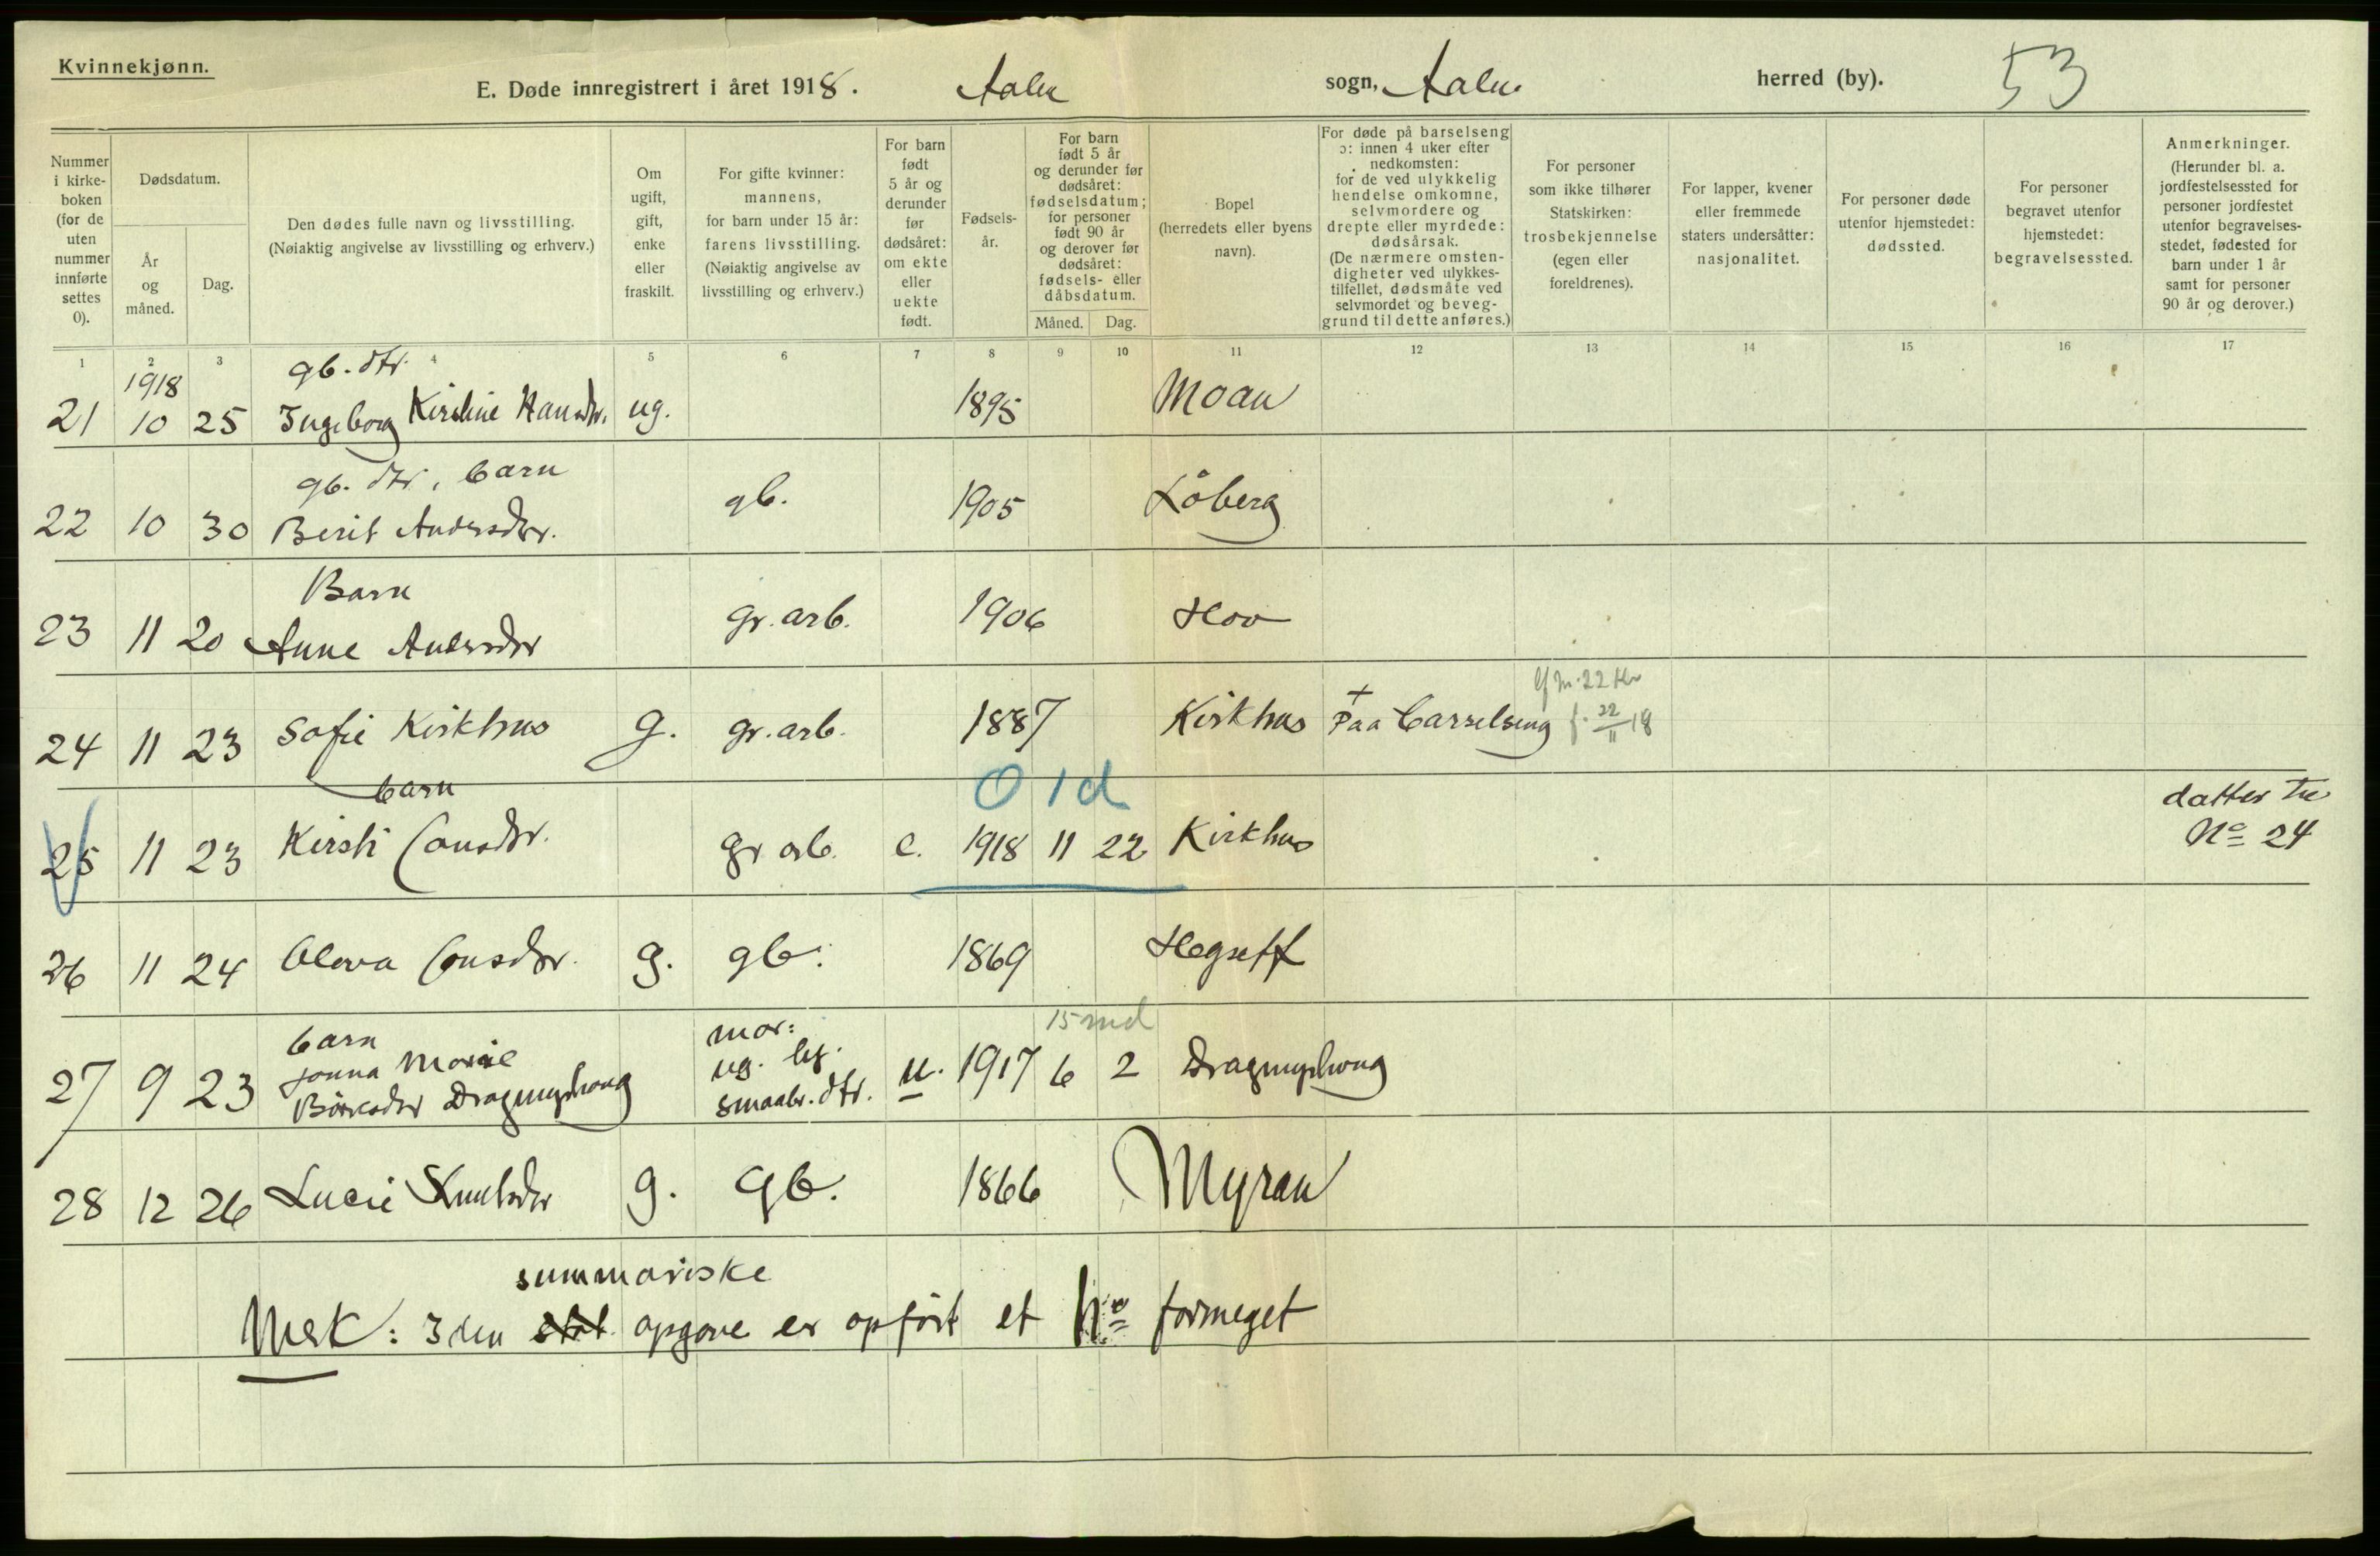 Kvinnekjønn.
E. Døde innregistrert i året 1918. Aalen sogn, Aalen herred (by). 53
Nummer i kirke-boken (for de uten nummer innførte settes 0).
Dødsdatum.
År og måned.
Dag.
Den dødes fulle navn og livsstilling.
(Nøiaktig angivelse av livsstilling og erhverv.)
Om ugift, gift, enke eller fraskilt.
For gifte kvinner: mannens, for barn under 15 år: farens livsstilling. (Nøiaktig angivelse av livsstilling og erhverv.)
For barn født 5 år og derunder før dødsåret: om ekte eller uekte født.
Fødsels-år.
For barn født 5 år og derunder før dødsåret: fødselsdatum; for personer født 90 år og derover før dødsåret: fødsels- eller dåbsdatum.
Måned. Dag.
Bopel (herredets eller byens navn).
For døde på barselseng ɔ: innen 4 uker efter nedkomsten: for de ved ulykkelig hendelse omkomne, selvmordere og drepte eller myrdede: dødsårsak. (De nærmere omsten-digheter ved ulykkes-tilfellet, dødsmåte ved selvmordet og beveg-grund til dette anføres.)
For personer som ikke tilhører Statskirken: trosbekjennelse (egen eller foreldrenes).
For lapper, kvener eller fremmede staters undersåtter: nasjonalitet.
For personer døde utenfor hjemstedet: dødssted.
For personer begravet utenfor hjemstedet: begravelsessted.
Anmerkninger. (Herunder bl. a. jordfestelsessted for personer jordfestet utenfor begravelses-stedet, fødested for barn under 1 år samt for personer 90 år og derover.)
1 2 3 4 5 6 7 8 9 10 11 12 13 14 15 16 17
1918 gb. dtr.
21 10 25 Ingeborg Kirstine Hansdtr. ug. 1895 Moan
gb. dtr, barn
22 10 30 Berit Andersdtr. gb. 1905 Låberg
Barn
23 11 20 Anne Andersdtr gr. arb. 1906 Hov
24 11 23 Sofie Kirkhus g. gr. arb. 1887 Kirkhus + Paa barselseng f. 22/11 18
barn 0 1 d datter til
25 11 23 Kirsti Jonsdtr. gr arb. e. 1918 11 22 Kirkhus No 24
26 11 24 Oleva Jonsdtr. g. gb. 1869 Hegsett
barn mor: 15 md
27 9 23 Jonna Marie ug. u. 1917 6 2 Dragmyrhaug
Dragmyrhaug smaabr. dtr.
28 12 26 Lucie Knutsdtr g. gb. 1866 Myran
summariske
Merk: I den stat. opgave er opført et No formeget